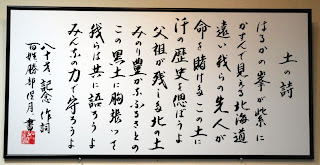 土の詩
はるかの峯が紫に
かすんで見える北海道
遠い我らの先人が
命を賭けるこの土に
汗の歴史を偲ぼうよ
父祖が残した北の土
みのり豊かなふるさとの
この黒土に胸張って
我らは共に語ろうよ
みんなの力で守ろうよ
八十才 記念 作詞
百姓 勝部